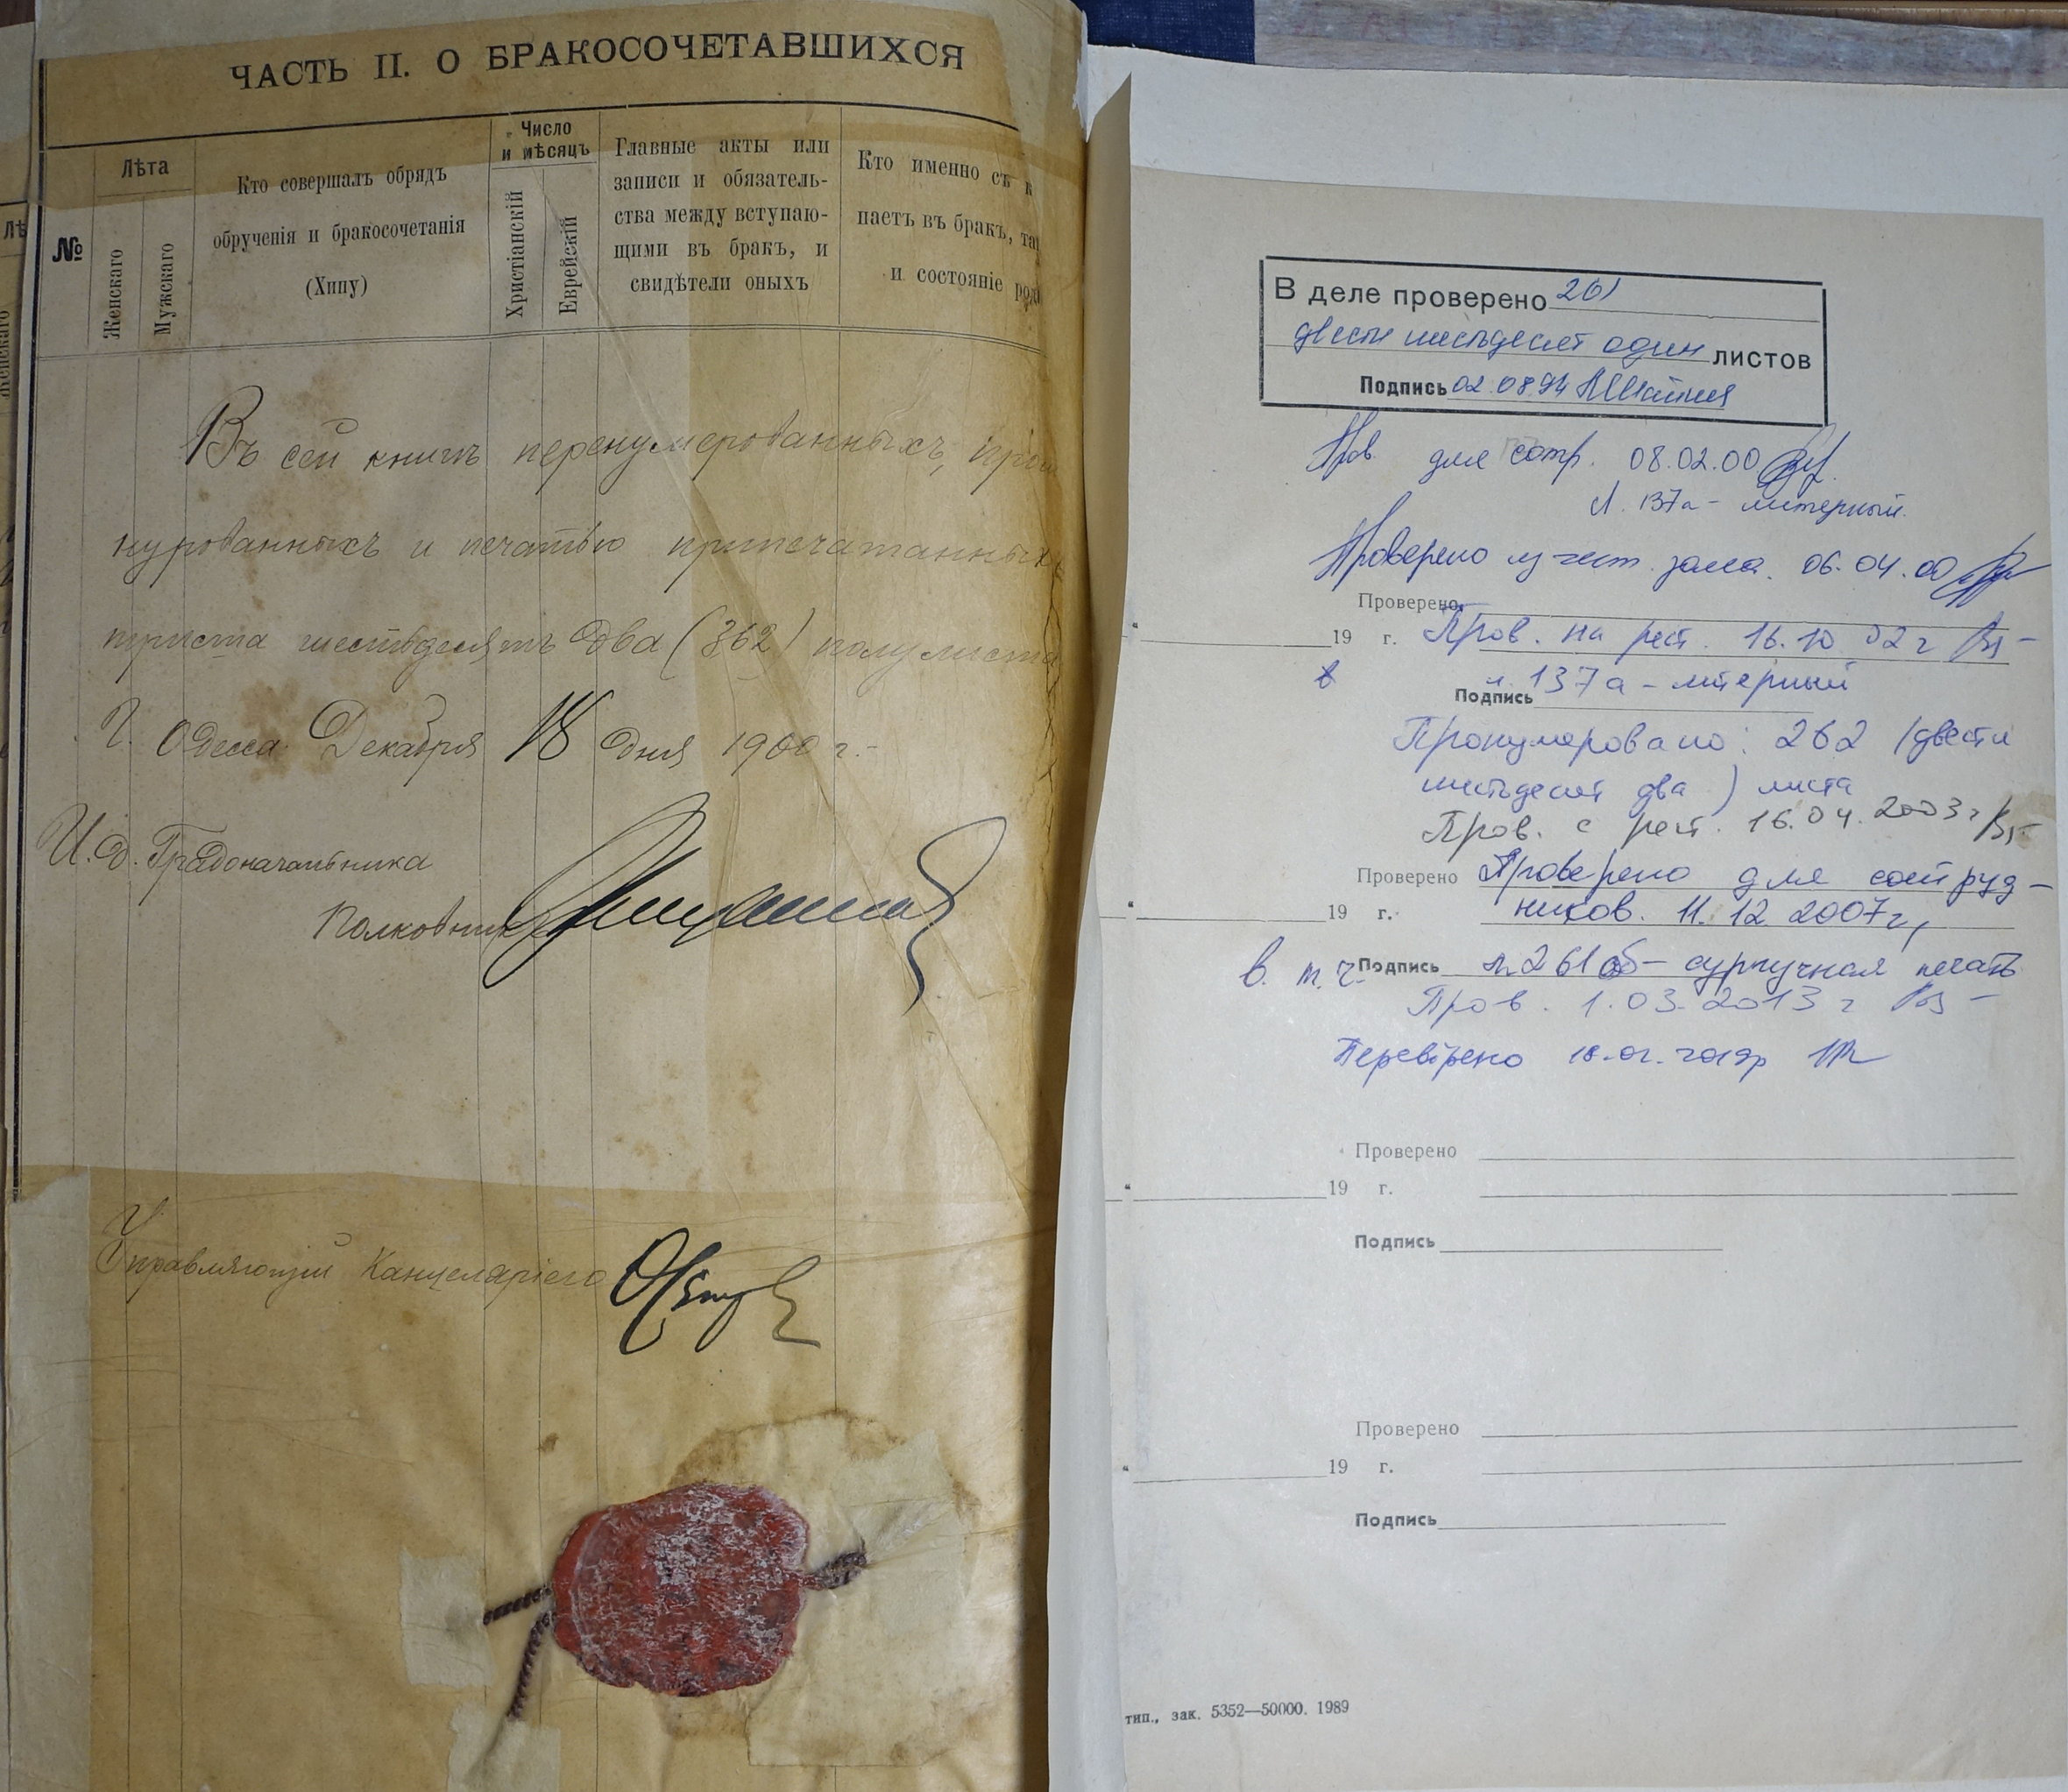 ЧАСТЬ II. О БРАКОСОЧЕТАВШИХСЯ
№
Лѣта
Женскаго
Мужскаго
Кто совершалъ обрядъ
обрученія и бракосочетанія
(Хипу)
Число
и мѣсяцъ
Христіанскій
Еврейскій
Главные акты или
записи и обязатель-
ства между вступаю-
щими въ бракъ, и
свидѣтели оныхъ
Кто именно съ к
паетъ въ бракъ, так
и состояніе роди
Въ сей книгѣ перенумерованныхъ, прош
нурованныхъ и печатью припечатанныхъ
триста шестьдесятъ два (362) полулиста
Г. Одесса Декабря 18 дня 1900 г.-
И. д. Градоначальника
Полковникъ
Управляющій Канцеляріею
В деле проверено 261
двести шестьдесят один листов
Подпись 02.08.94
Пров. для сотр. 08.02.00
Л. 137а - литерный.
Проверено чит. зала. 06.04.00
Проверено
19 г. Пров. на рест. 16.10.02 г
л. 137а - литерный
Подпись
Пронумеровано: 262 (двести
шестьдесят два) листа
Пров. с рест. 16.04.2003 г
Проверено Проверено для сотруд-
19 г. ников. 11.12.2007 г,
в. т. ч. Подпись л. 261 об - сургучная печать
Пров. 1.03.2013 г
Перевірено
Проверено
19 г.
Подпись
Проверено
19 г.
Подпись
тип., зак. 5352—50000. 1989